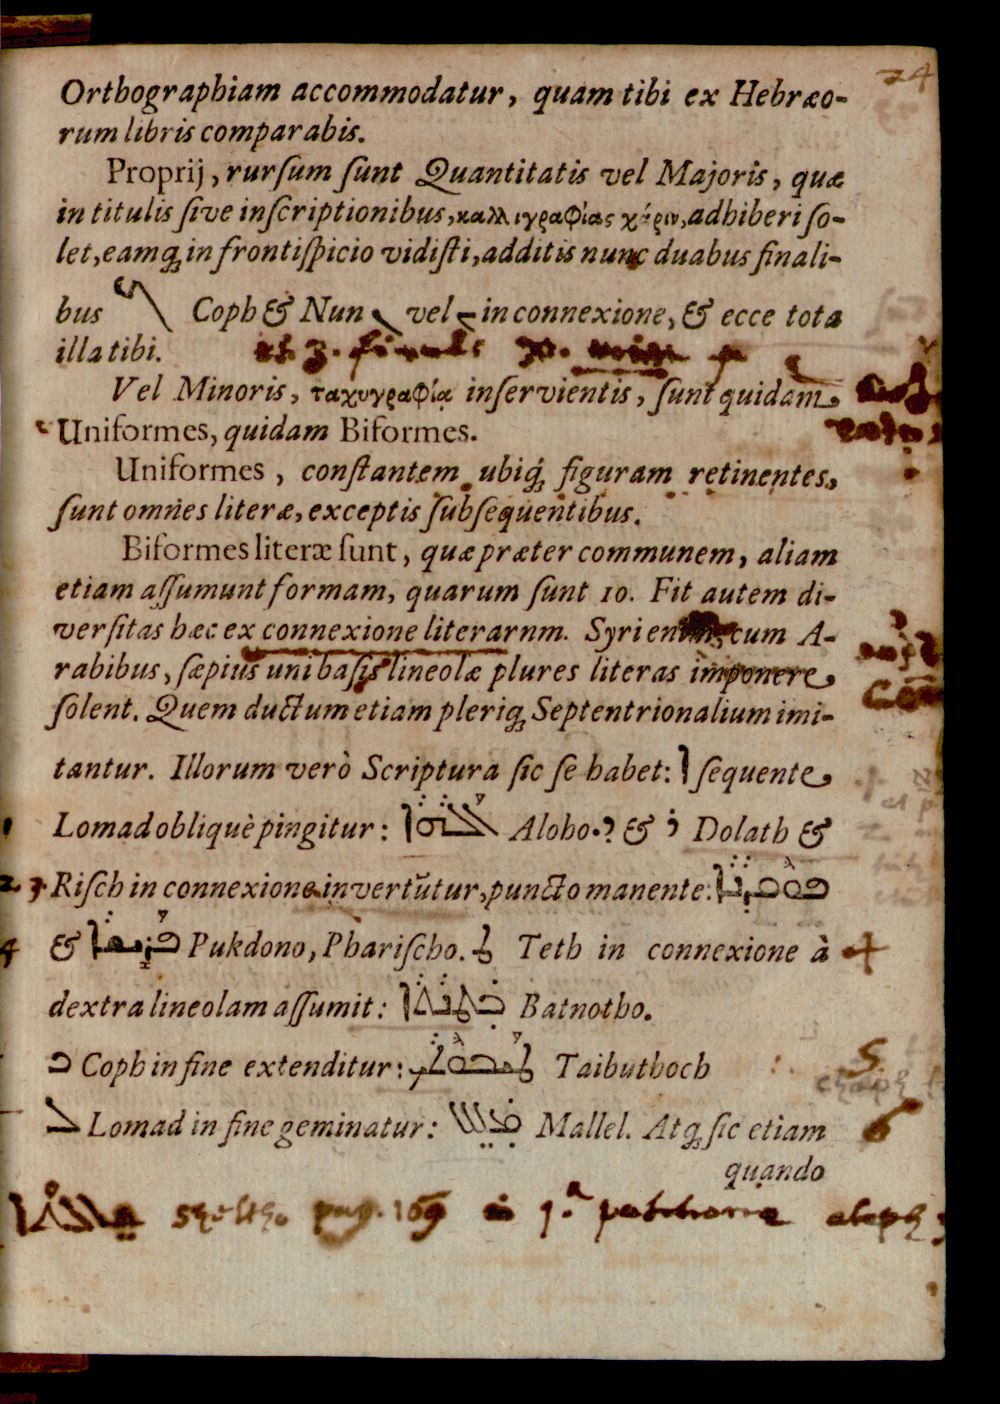 24
Orthographiam accommodatur, quam tibi ex Hebræo-
rum libris comparabis.
Proprij, rurſum ſunt Quantitatis vel Majoris, quæ
in titulis ſive inſcriptionibus, καλλιγραφίας χάριν, adhiberi ſo-
let, eamq́; in frontiſpicio vidiſti, additis nunc duabus finali-
bus Coph & Nun vel in connexione, & ecce tota
illa tibi.
Vel Minoris, ταχυγραφίᾳ inſervientis, ſunt quidam
Uniformes, quidam Biformes.
Uniformes, conſtantem ubiq́; figuram retinentes,
ſunt omnes literæ, exceptis ſubſequentibus.
Biformes literæ ſunt, quæ præter communem, aliam
etiam aſſumunt formam, quarum ſunt 10. Fit autem di-
verſitas hæc ex connexione literarnm. Syri enim, cum A-
rabibus, ſæpius uni baſis lineolæ plures literas imponere
ſolent. Quem ductum etiam pleriq; Septentrionalium imi-
tantur. Illorum verò Scriptura ſic ſe habet: ܐ ſequente
Lomad obliquè pingitur: ܐܠܗܐ Aloho. ܕ & ܪ Dolath &
2 3. Riſch in connexione invertũtur, puncto manente: ܦܘܩܕܢܐ
4 & ܦܪܝܫܐ Pukdono, Phariſcho. ܛ Teth in connexione à
dextra lineolam aſſumit: ܒܛܢܬܐ Batnotho.
ܟ Coph in fine extenditur: ܛܝܒܘܬܟ Taibuthoch 5.
ܠ Lomad in fine geminatur: ܡܠܠ Mallel. Atq; ſic etiam 6
quando
pag. 169 in 1.ª aleph